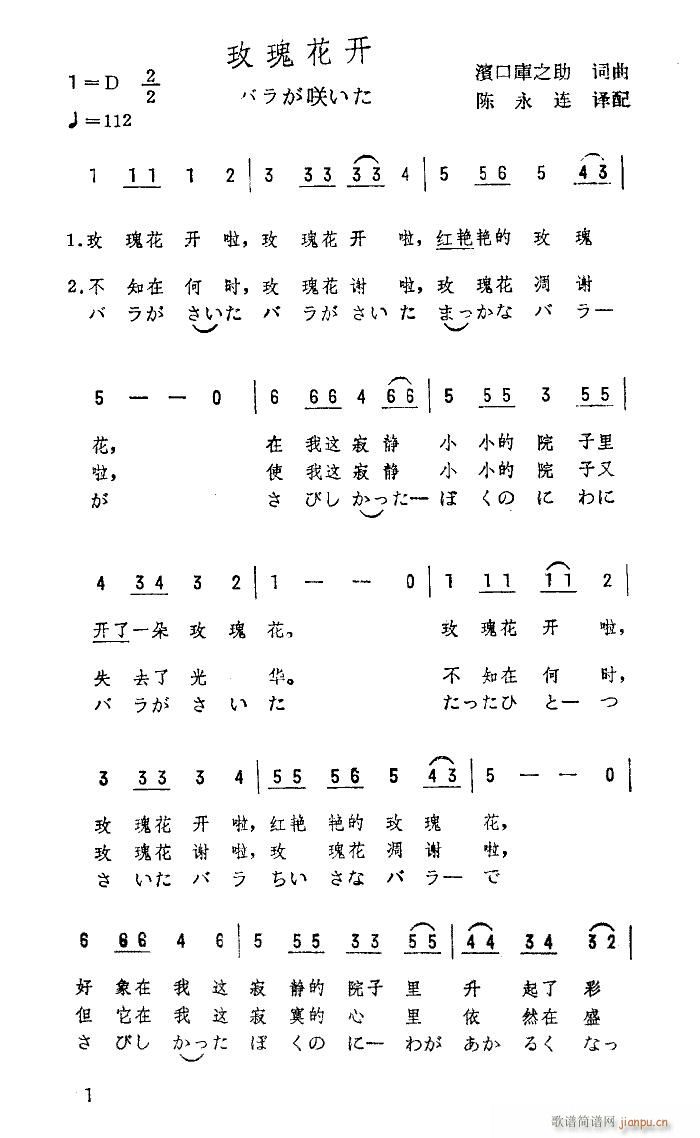 玫瑰花开
バラが咲いた
1=D 2/2
♩=112
濱口庫之助 词曲
陈永连 译配
1 1 1 1 2 | 3 3 3 3 3 4 | 5 5 6 5 4 3 |
1.玫 瑰花 开 啦,玫 瑰花 开 啦,红艳艳的 玫 瑰
2.不 知在 何 时,玫 瑰花 谢 啦,玫 瑰花 凋 谢
バ ラが さいた バ ラが さいた まっかな バ ラー
5 — — 0 | 6 6 6 4 6 6 | 5 5 5 3 5 5 |
花, 在 我这 寂 静 小 小的 院 子里
啦, 使 我这 寂 静 小 小的 院 子又
が さ びし かったー ぼ くの に わに
4 3 4 3 2 | 1 — — 0 | 1 1 1 1 1 2 |
开了一朵 玫 瑰 花。 玫 瑰花 开 啦,
失 去了 光 华。 不 知在 何 时,
バ ラが さ い た たったひ とー つ
3 3 3 3 4 | 5 5 5 6 5 4 3 | 5 — — 0 |
玫 瑰花 开 啦,红艳 艳的 玫 瑰 花,
玫 瑰花 谢 啦,玫 瑰花 凋 谢 啦,
さ いた バ ラ ちい さな バ ラー で
6 6 6 4 6 | 5 5 5 3 3 5 5 | 4 4 3 4 3 2 |
好 象在 我 这 寂 静的 院子 里 升 起了 彩
但 它在 我 这 寂 寞的 心 里 依 然在 盛
さ びし かった ぼ くの にー わが あか るく なっ
1
歌谱简谱网 jianpu.cn